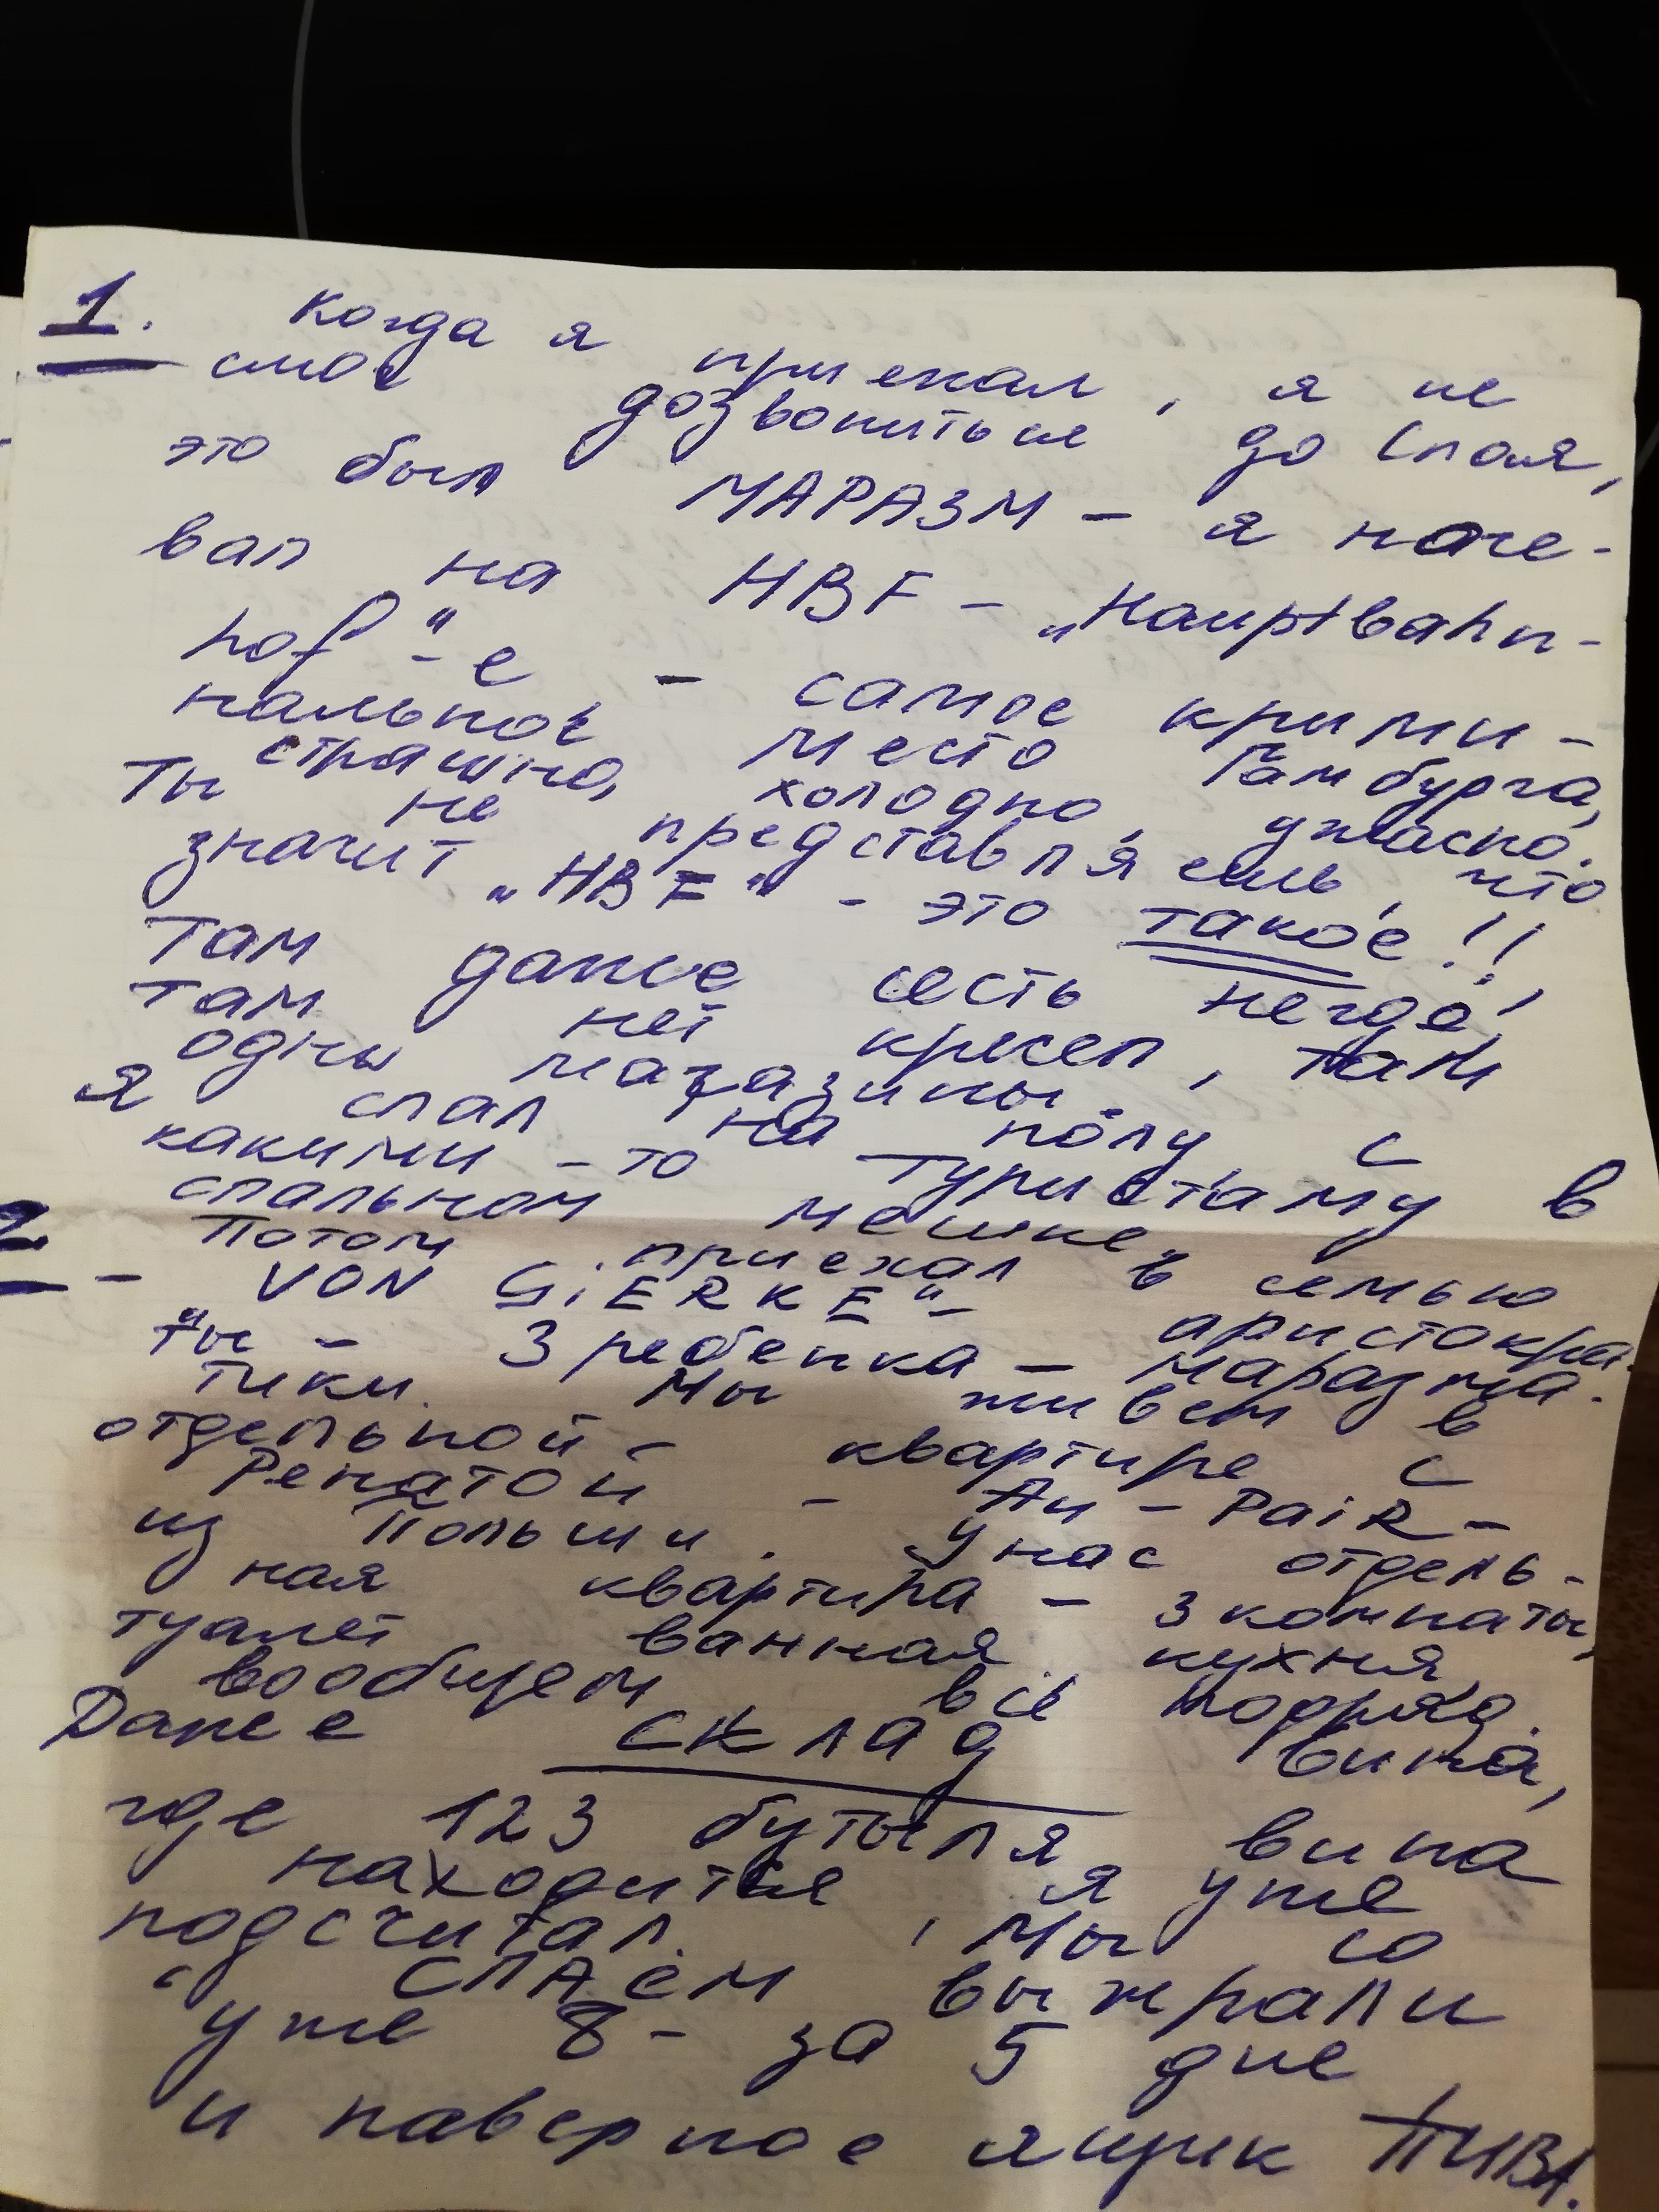 1. Когда я приехал, я не
смог дозвониться до Спая,
это был МАРАЗМ - я ноче-
вал на HBF - „Hauptbahn-
hof"-е - самое крими-
нальное место Гамбурга,
страшно, холодно, ужасно.
Ты не представляешь, что
значит „HBF" - это такое!!!
Там даже сесть негде,
там нет кресел, там
одны магазины.
Я спал на полу с
какими-то туристаму в
спальном мешке,
2 - Потом приехал в семью
„VON GiERKE" - аристокра-
ты - 3 ребенка - маразма-
тики. Мы живем в
отдельной - квартире с
Ренатой - Au-PaiR -
из Польши. У нас отдель-
ная квартира - 3 комнаты,
туалет ванная, кухня,
вообщем все подряд.
Даже склад вина,
где 123 бутыля вина
находится, я уже
подсчитал. Мы со
СПАем выжрали
уже 8 - за 5 дне
и наверное ящик ПИВА.